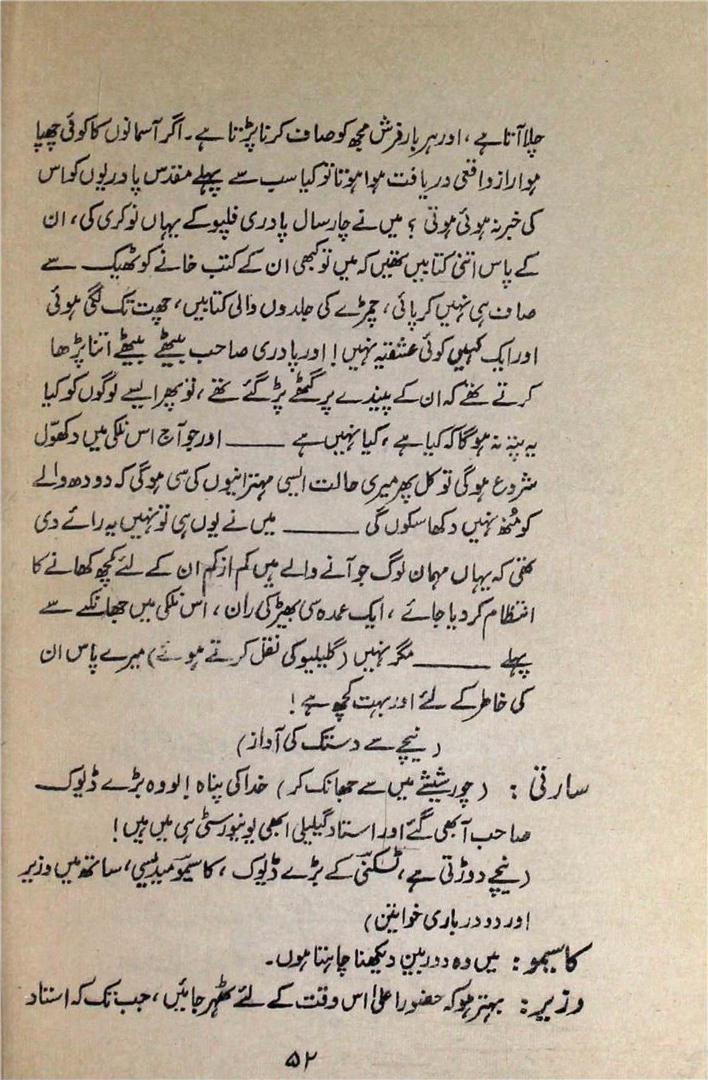 چلا آتا ہے، اور ہر بار فرش مجھ کو صاف کرنا پڑتا ہے۔ اگر آسمانوں کا کوئی چھپا
ہوا راز واقعی دریافت ہوا ہوتا تو کیا سب سے پہلے مقدس پادریوں کو اس
کی خبر نہ ہوئی ہوتی ؟ میں نے چار سال پادری فلپو کے یہاں نوکری کی، ان
کے پاس اتنی کتابیں تھیں کہ میں تو کبھی ان کے کتب خانے کو ٹھیک سے
صاف ہی نہیں کر پائی، چمڑے کی جلدوں والی کتابیں، چھت تک لگی ہوئی
اور ایک کہیں کوئی عشقیہ نہیں! اور پادری صاحب بیٹھے بیٹھے اتنا پڑھا
کرتے تھے کہ ان کے پیندے پر گھٹے پڑ گئے تھے، تو پھر ایسے لوگوں کو کیا
یہ پتہ نہ ہوگا کہ کیا ہے، کیا نہیں ہے ـــــــ اور جو آج اس نلکی میں دکھوّل
شروع ہوگی تو کل پھر میری حالت ایسی مہترانیوں کی سی ہوگی کہ دودھ والے
کو مُنھ نہیں دکھا سکوں گی ـــــــ میں نے یوں ہی تو نہیں یہ رائے دی
تھی کہ یہاں مہمان لوگ جو آنے والے ہیں کم از کم ان کے لئے کچھ کھانے کا
انتظام کر دیا جائے، ایک عمدہ سی بھیڑ کی ران، اس نلکی میں جھانکے سے
پہلے ـــــــ مگر نہیں (گلیلیو کی نقل کرتے ہوئے) میرے پاس ان
کی خاطر کے لئے اور بہت کچھ ہے!
(نیچے سے دستک کی آواز)
سارتی : (چور شیشے میں سے جھانک کر) خدا کی پناہ! لو وہ بڑے ڈیوک
صاحب آ بھی گئے اور استاد گیلیلی ابھی یونیورسٹی ہی میں ہیں!
(نیچے دوڑتی ہے، ٹسکنی کے بڑے ڈیوک، کاسیمو میدیسی، ساتھ میں وزیر
اور دو درباری خواتین)
کاسیمو : میں وہ دوربین دیکھنا چاہتا ہوں۔
وزیر : بہتر ہو کہ حضور اعلیٰ اس وقت کے لئے ٹھہر جائیں، جب تک کہ استاد
۵۲